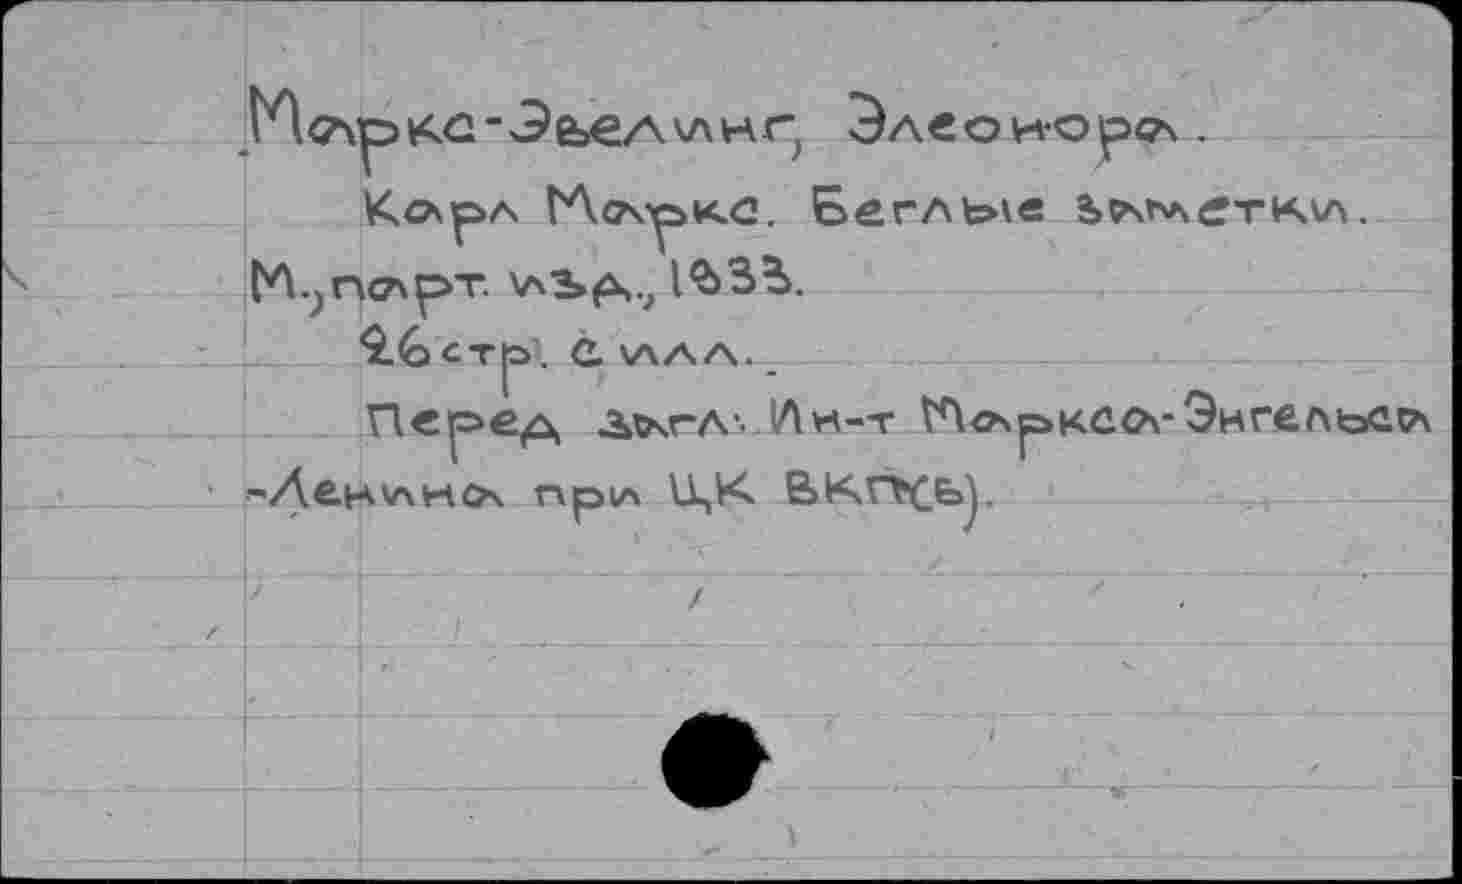 Маркс-Эвелинг, Элеонора.
Карл Маркс. Беглые заметки.
М., парт. изд., 1933.
26 стр. с илл.
Перед загл: Ин-т Маркса-Энгельса
-Ленина при ЦК ВКП(б).